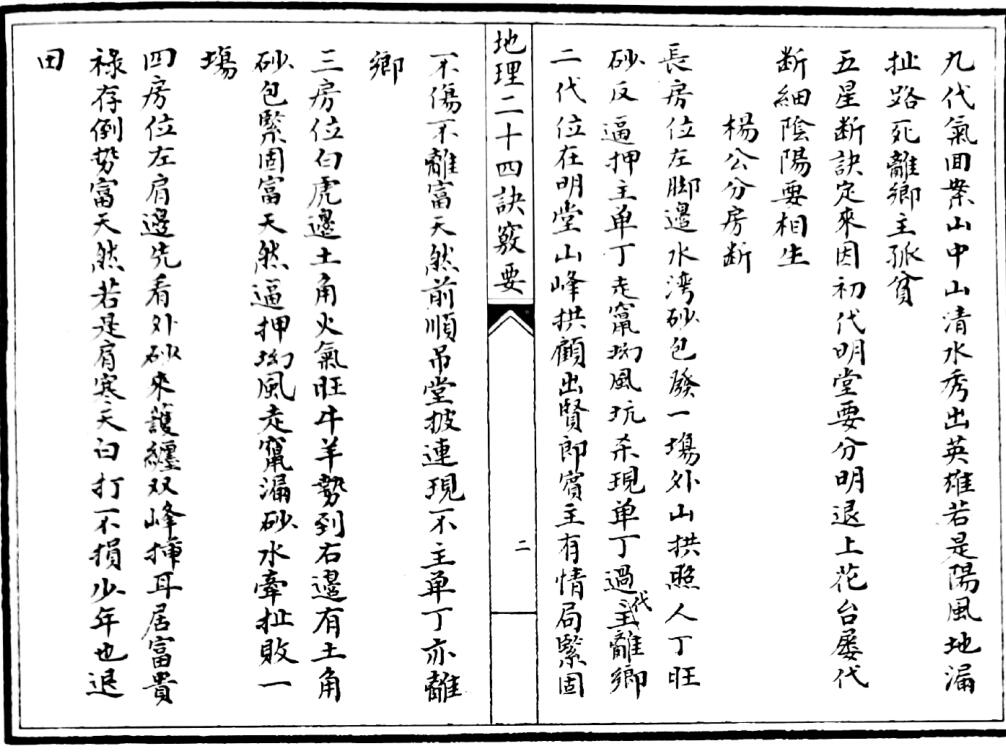 九代氣囬案山中山清水秀出英雄若是陽風地漏
扯路死離鄉主孤貧
五星断訣定來因初代明堂要分明退上花台屡代
断細陰陽要相生
楊公分房断
長房位左脚邉水湾砂包發一塲外山拱照人丁旺
砂反逼押主单丁走竄坳风坑杀現单丁過主離鄉
代
二代位在明堂山峰拱顧出賢郎賓主有情局緊固
地理二十四訣竅要
二
不傷不離富天然前順吊堂披連現不主单丁亦離
鄉
三房位白虎邉土角火氣旺牛羊勢到右邉有土角
砂包緊固富天然逼押坳風走竄漏砂水牽扯敗一
塲
四房位左肩邉先看外砂來護纏双峰揷耳居富貴
祿存倒势富天然若是肩寒天臼打不損少年也退
田